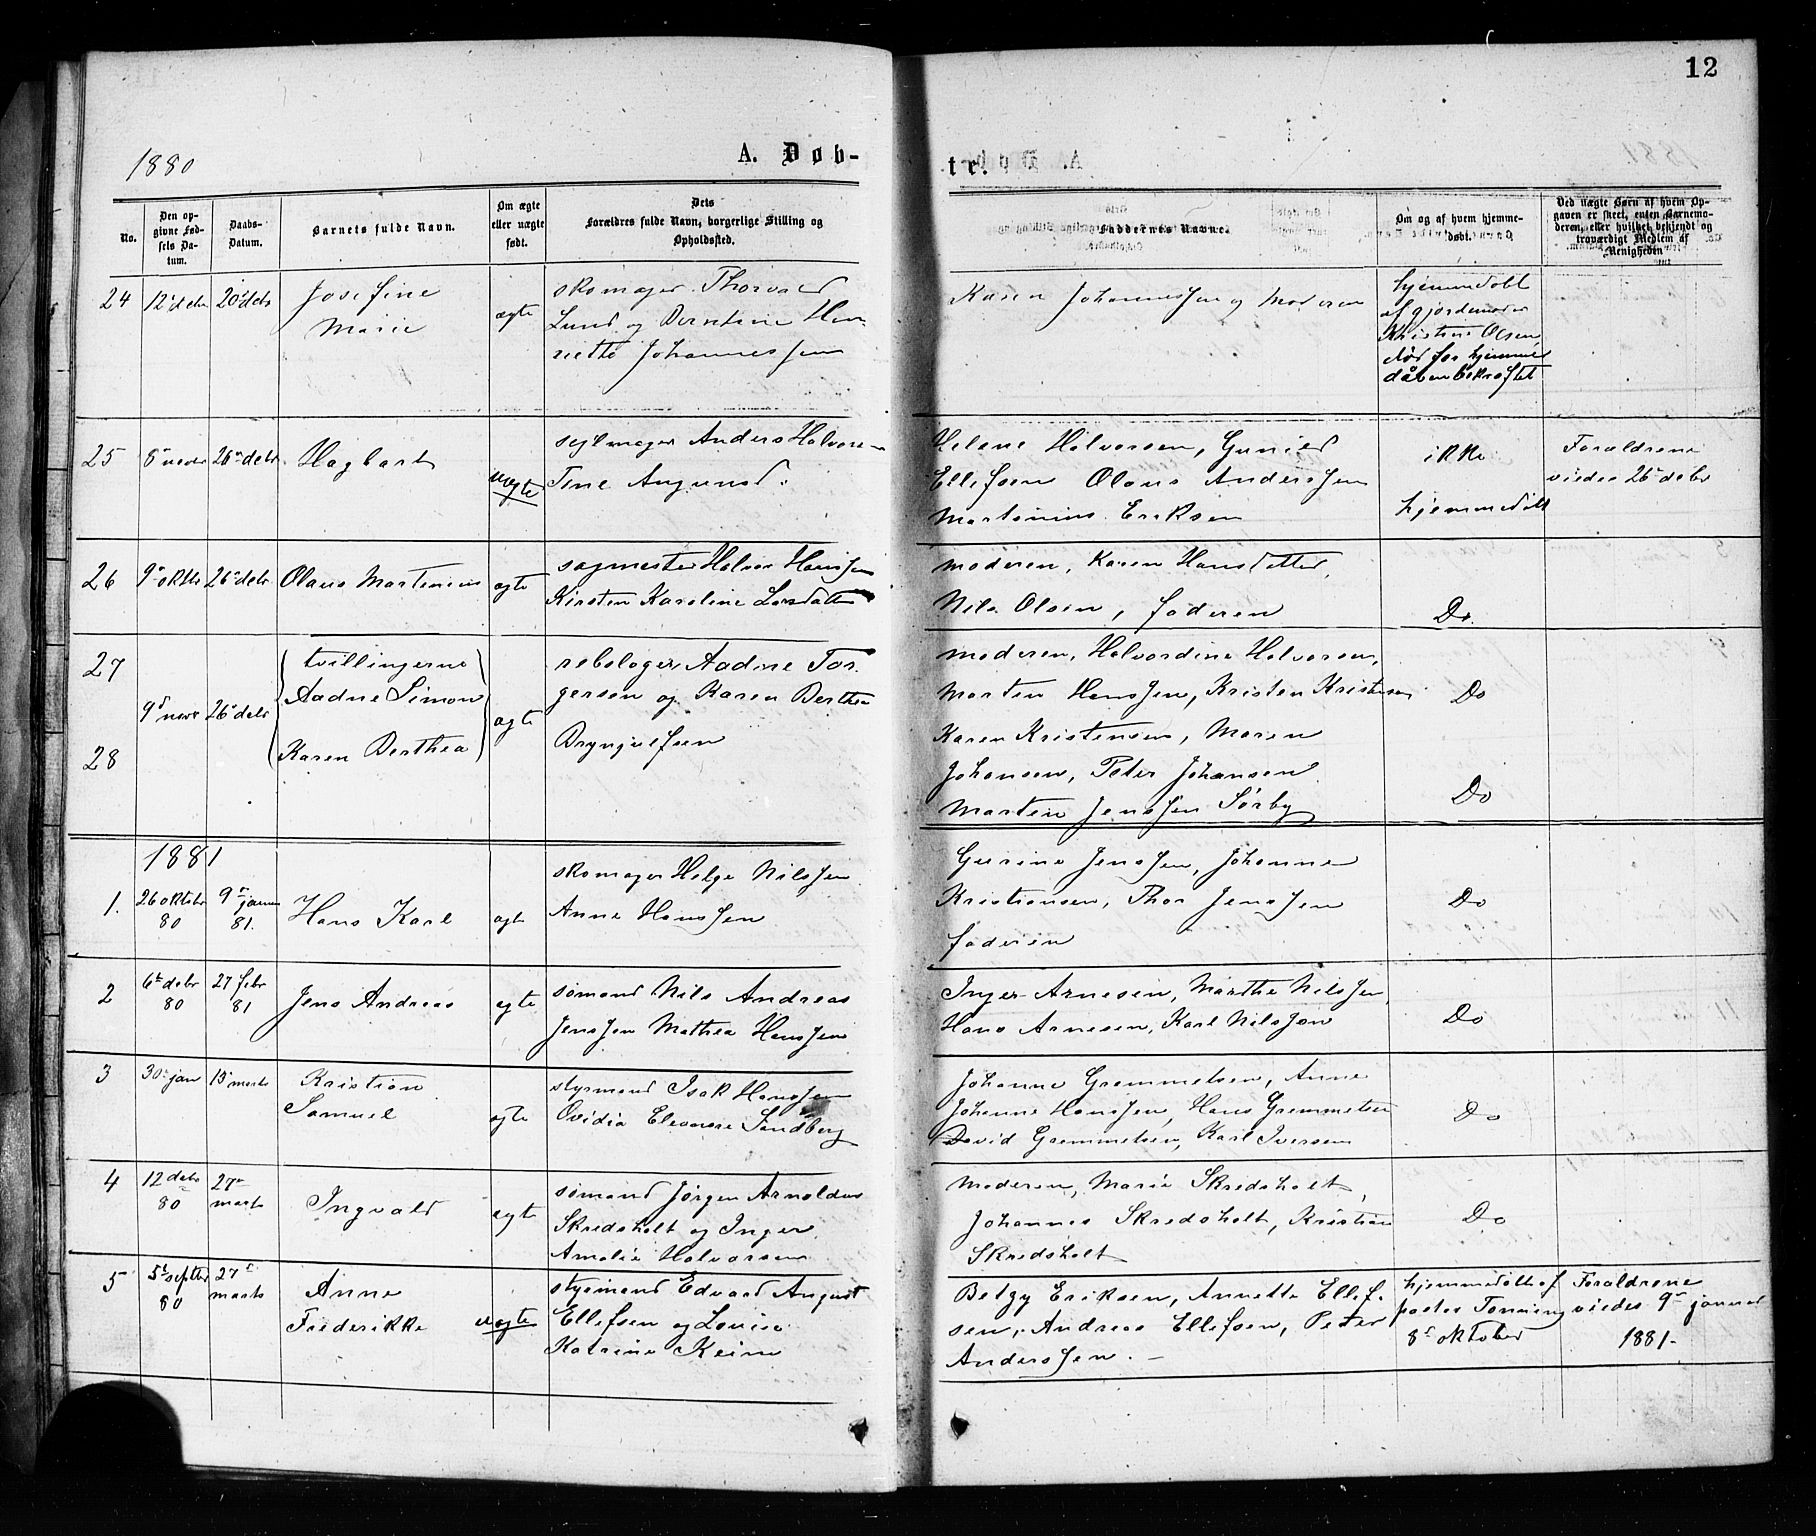 12
1880
A. Døb-
tr.
No.
Den op-
givne Fød-
sels Da-
tum.
Daabs-
Datum.
Barnets fulde Navn.
Om ægte
eller uægte
født.
Dets
Forældres fulde Navn, borgerlige Stilling og
Opholdssted.
Faddernes Navne.
Om og af hvem hjemme-
døbt.
Ved uægte Børn af hvem Op-
gaven er skeet, enten Barnemo-
deren, eller hvilket bekjendt og
troværdigt Medlem af
Menigheden
24
12' debr
20' debr
Josefine
Marie
ægte
skomager Thorvald
Lund og Berntine Hen-
riette Johannessen
Karen Johannessen og Moderen
hjemmedøbt
af gjordemoder
Kristine Olsen
død før hjemme
dåben bekræftet
25
26 debr
Hagbart
uægte
sejlmager Anders Halvorsen
Tine Aagunsd.
Helene Halvorsen, Gunild
Ellefsen Olaus Anderssen
Martinius Eriksen
ikke
hjemmedøbt
Forældrene
viedes 26 debr
26
9 oktbr
26 debr
Olaus Martinius
ægte
sagmester Halvor Hanssen
Kirsten Karoline Larsdatter
moderen, Karen Hansdatter,
Nils Olsen, faderen
Do.
27
28
9 novr
26 debr
tvillingerne
Aadne Simon
Karen Berthea
ægte
rebslager Aadne Tor-
gersen og Karen Berthea
Brynjulfsen
moderen, Halvordine Halvorsen,
Morten Hanssen, Kristen Kristensen
Karen Kristensen, Maren
Johansen, Peter Johansen
Martin Jenssen Sørby
Do
Do
1881
1.
26 oktobr
80
9 januar
81.
Hans Karl
ægte
skomager Helge Nilssen
Anne Hanssen
Gurine Jenssen, Johanne
Kristiansen, Thor Jenssen
faderen
Do
2
6 debr
80
27 febr
81
Jens Andreas
ægte
sømand Nils Andreas
Jenssen Mathea Hanssen
Inger Arnesen, Marthe Nilssen,
Hans Arnesen, Karl Nilssen
Do
3
30 jan
13 marts
Kristian
Samuel
ægte
styrmand Isak Hanssen
Ovidia Eleonore Sandberg
Johanne Grommetsen, Anne
Johanne Hanssen, Hans Grommetsen
David Grommetsen, Karl Iversen
Do
4
12 debr
80
27
marts
Ingvald
ægte
sømand Jørgen Arnoldus
Skredsholt og Inger
Amalie Halvorsen
Moderen, Marie Skredsholt,
Johannes Skredsholt, Kristian
Skredsholt
Do
5
5 septbr
80
27
marts
Anne
Frederikke
uægte
styrmand Edvard August
Ellefsen og Lovise
Katrine Keim
Betzy Eriksen, Annette Ellef-
sen, Andreas Ellefsen, Peter
Anderssen. —
hjemmedøbt af
pastor Tønning
8 oktober
Forældrene
viedes 9 januar
1881.